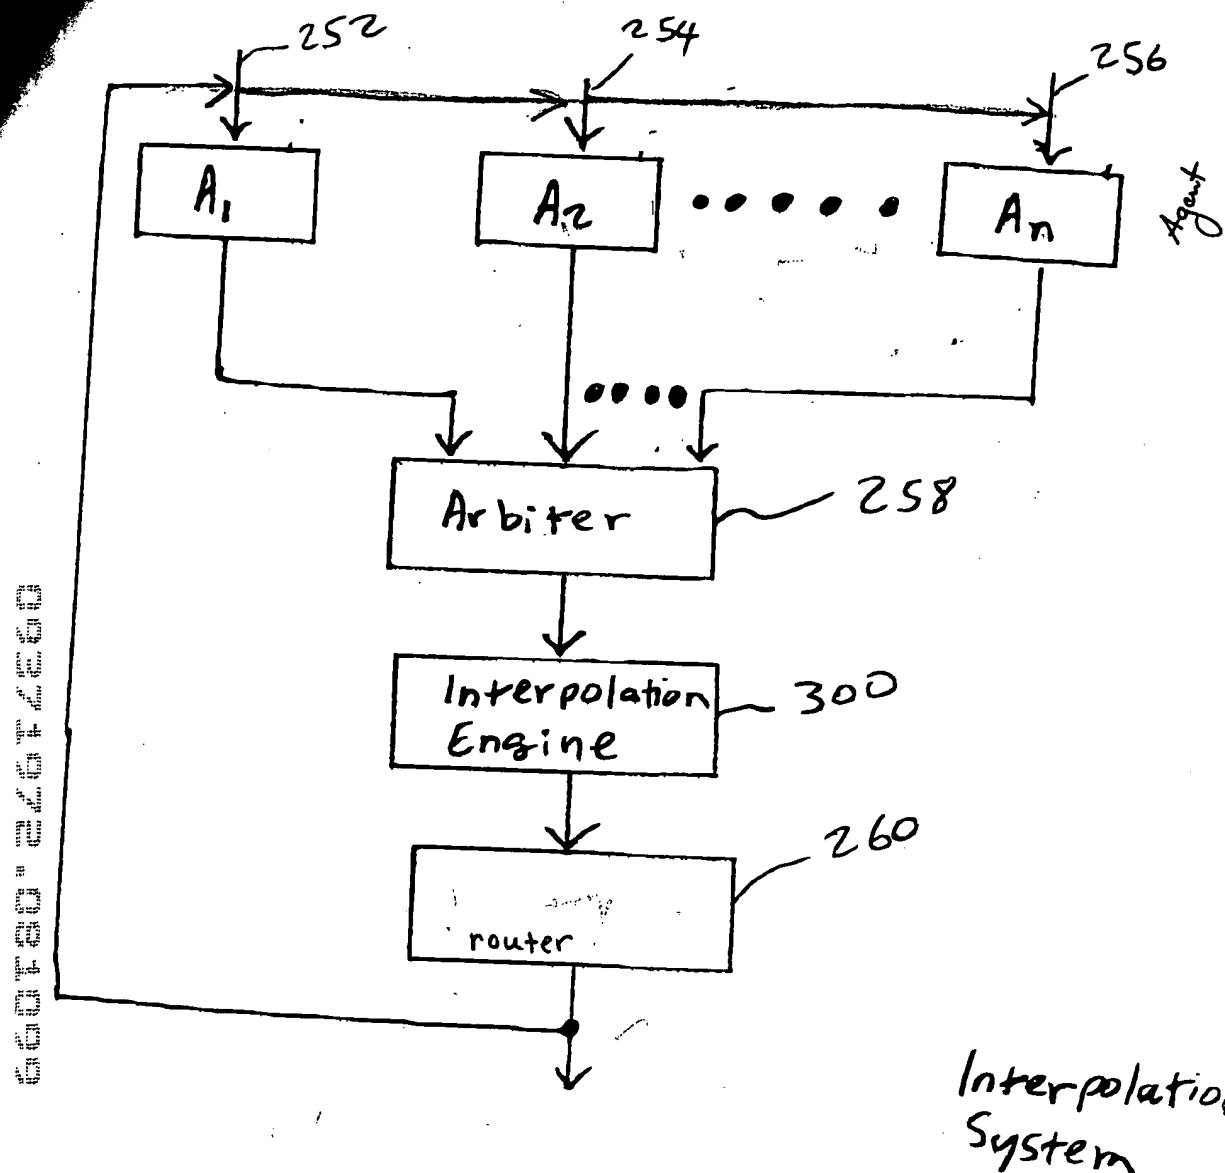 252
254
256
A1
A2
An
Agent
Arbiter
258
Interpolation
Engine
300
260
router
09371972.081099
Interpolation
System